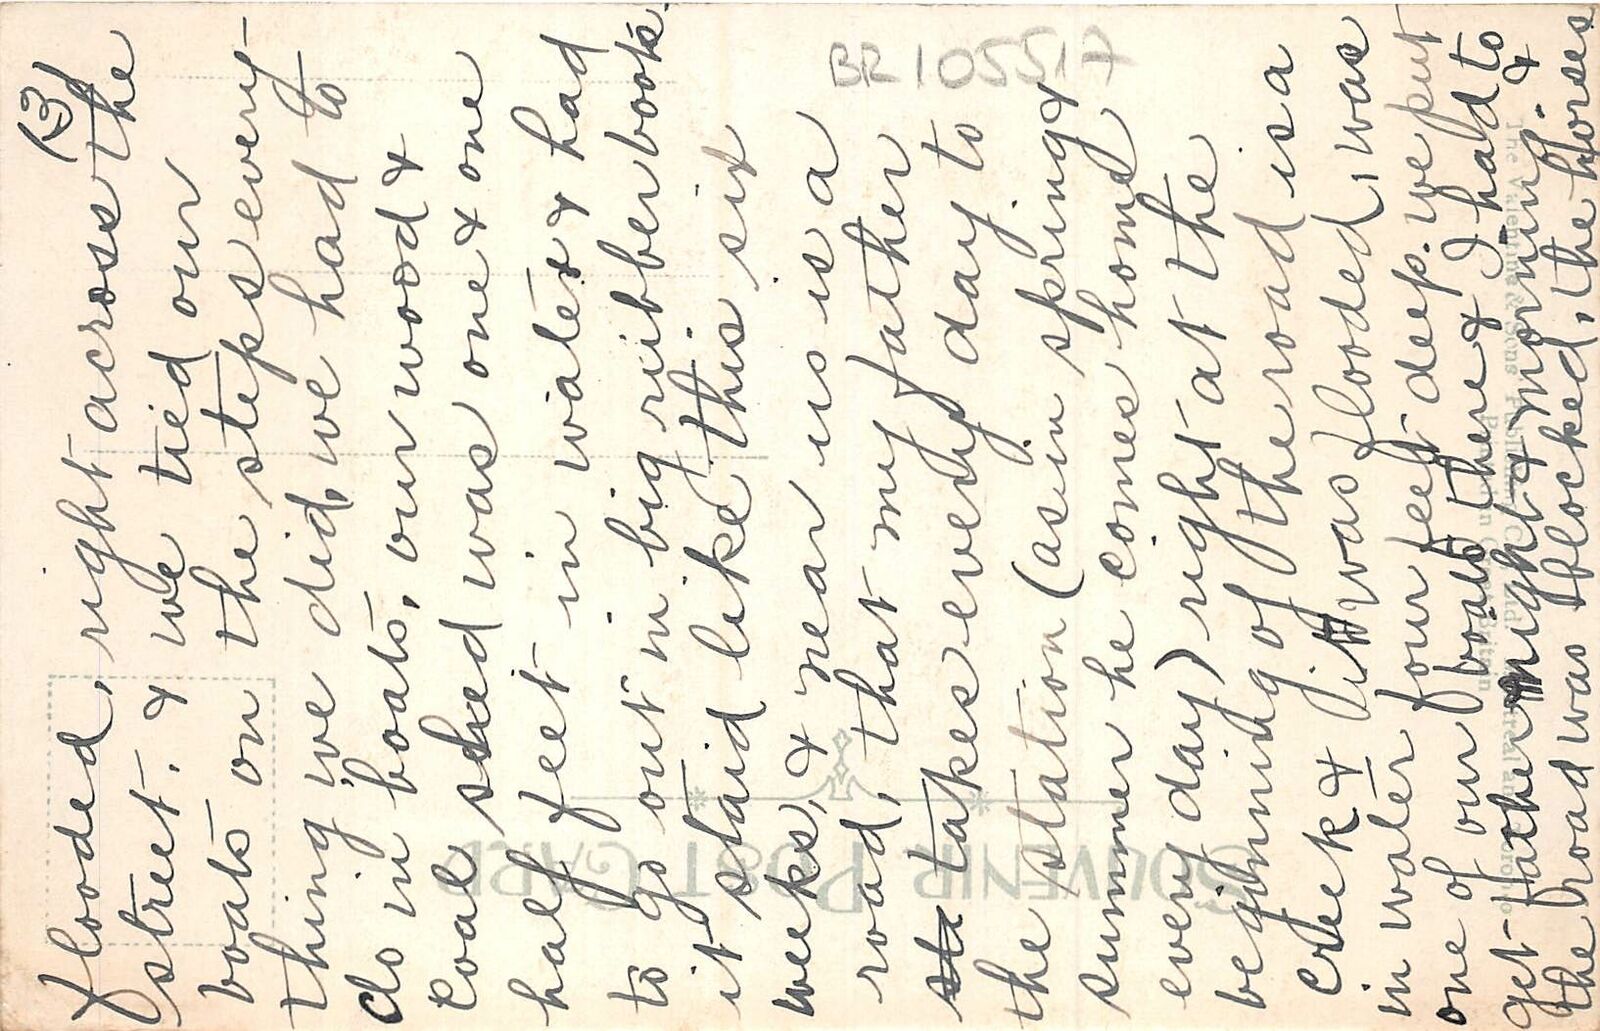 (3)
flooded, right across the
street. & we tied our
boats on the steps every-
thing we did, we had to
do in boats, our wood &
coal shed was one & one
half feet in water & had
to go out in big ribber boots.
it staid like this six
weeks, & near us is a
road, that my father
takes every day to
the station (as in spring &
summer he comes home
every day) right at the
beginning of the road is a
creek & it was flooded, was
in water four feet deep. we put
one of our boats there & I had to
get father night & morning. &
the road was flocked, the horses
BR 105517
SOUVENIR POST CARD
The Valentine & Sons Publishing Co. Ltd. Montreal and Toronto
Printed in Great Britain